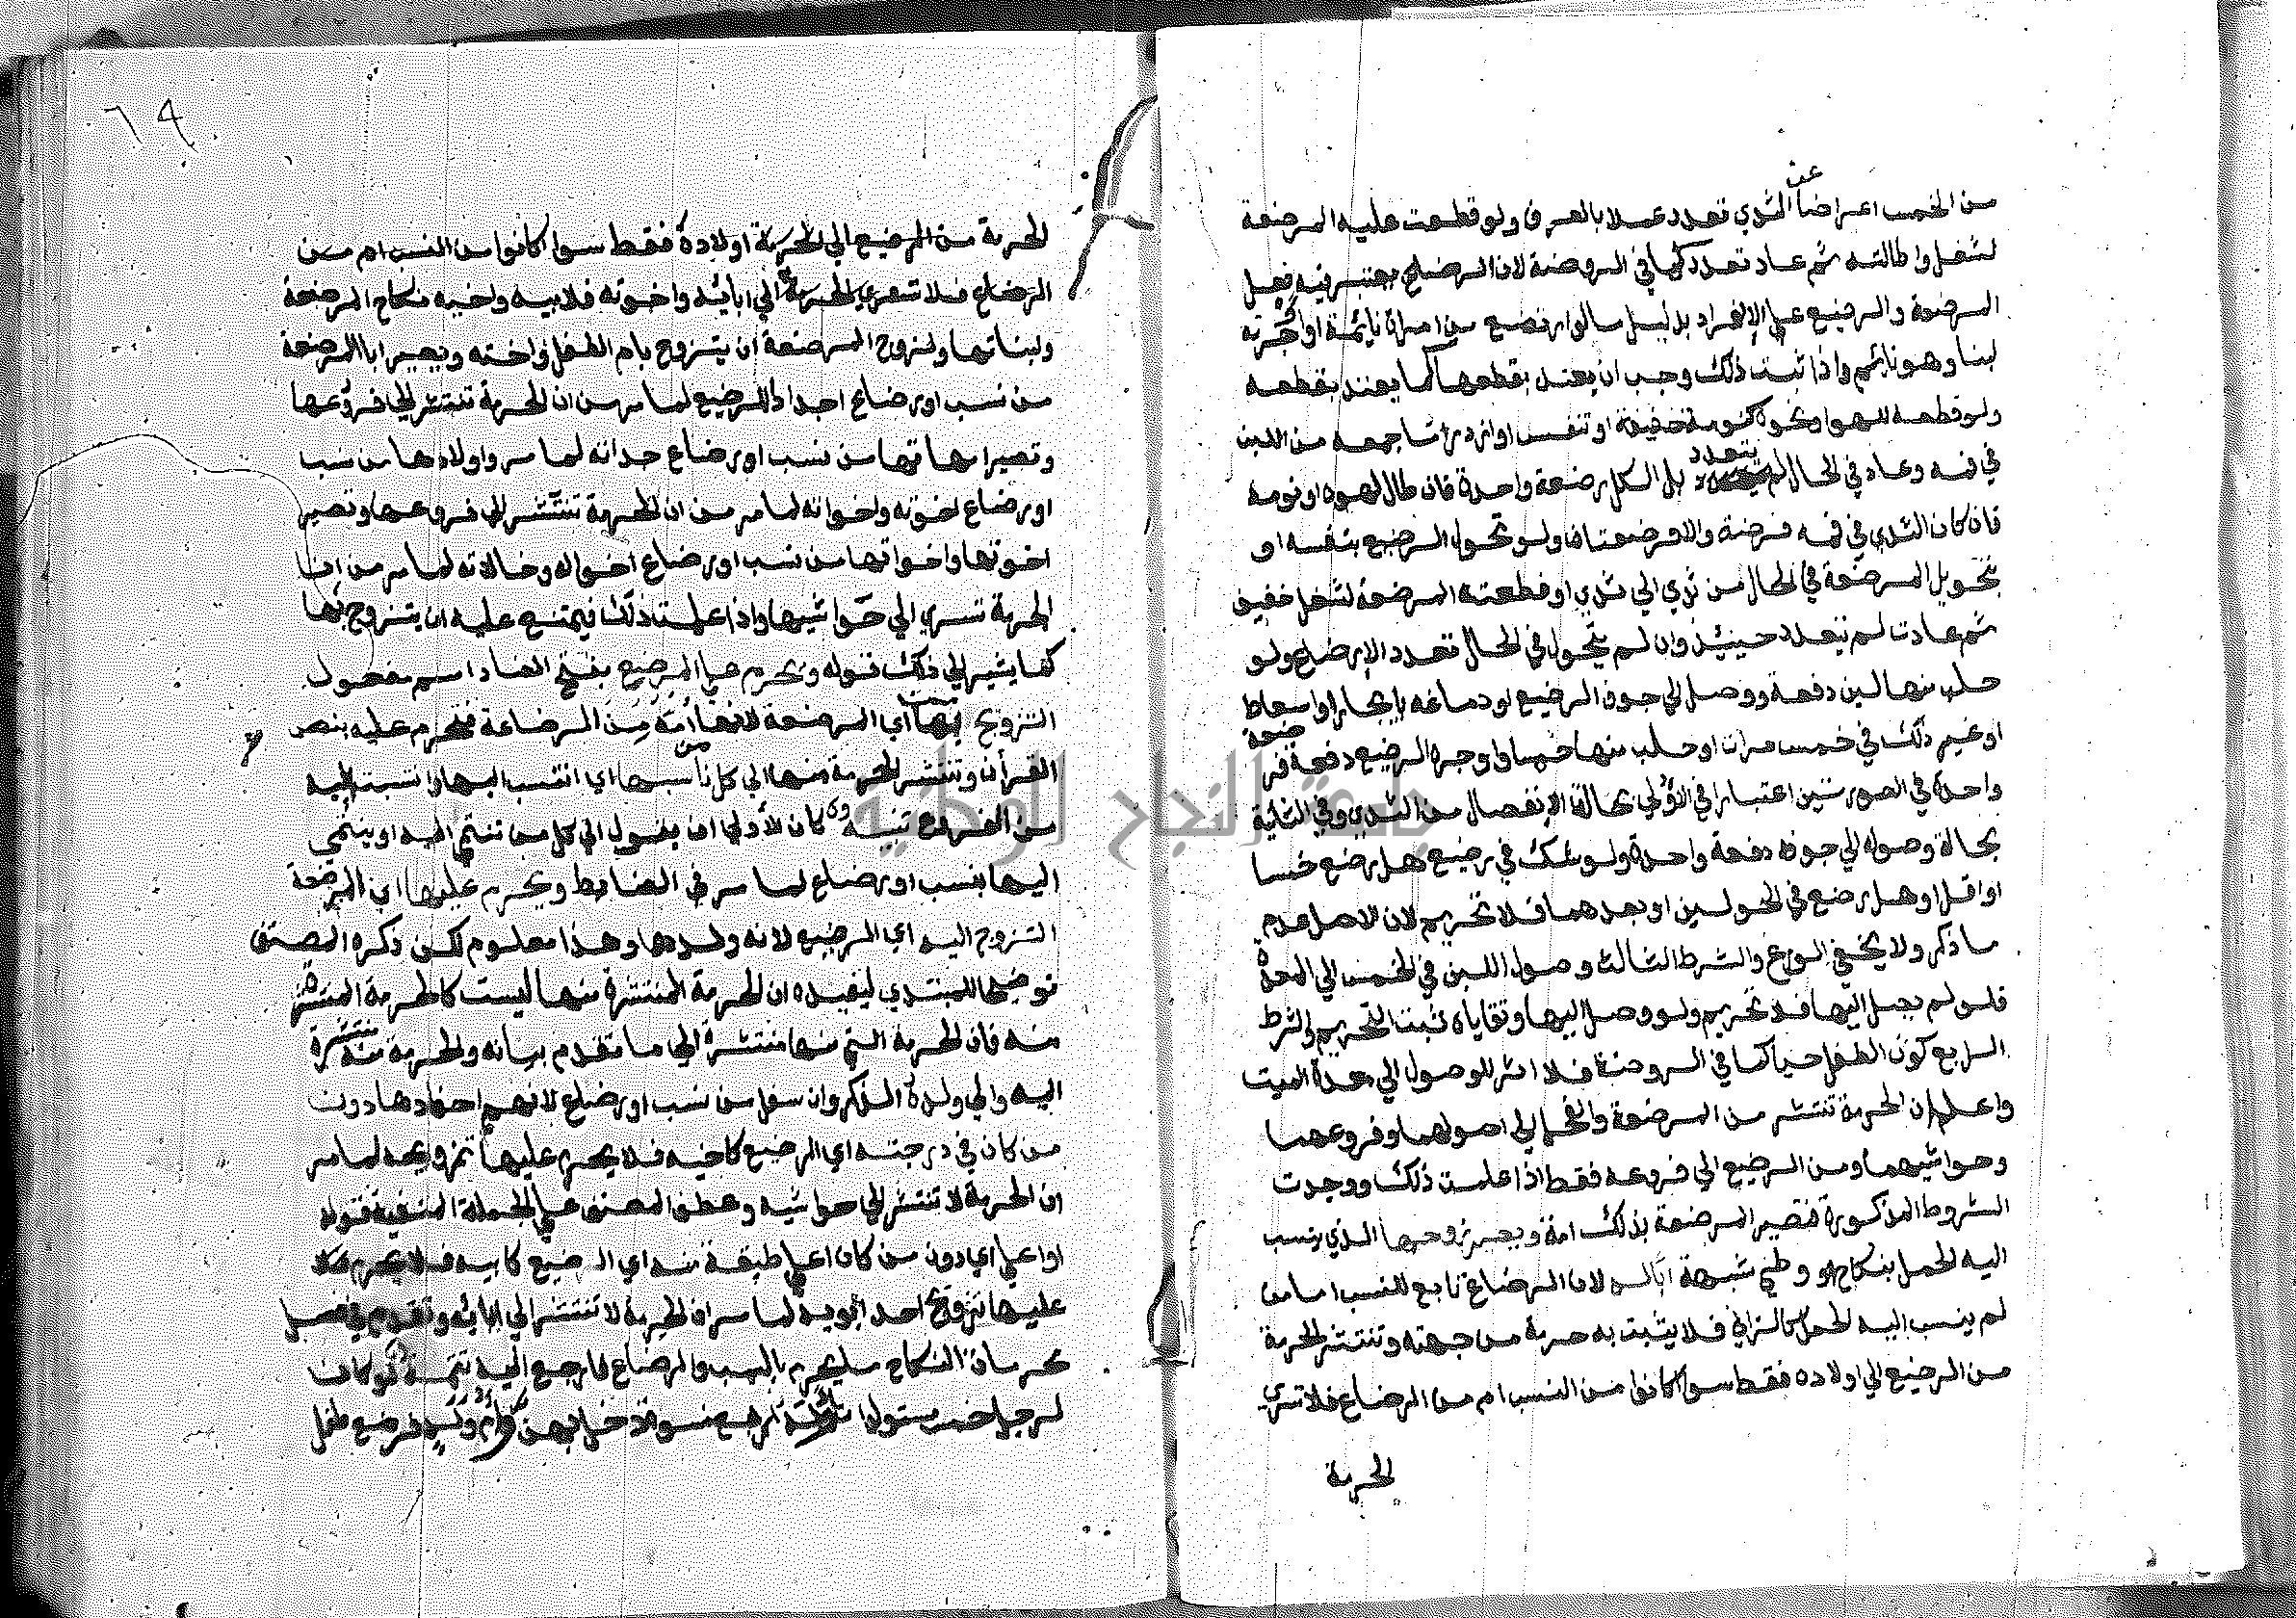 من الخمس اعراضا عن الثدي تعدد عملا بالعرف ولو قطعت عليه المرضعة
لشغل واطالته ثم عاد تعدد كما في الروضة لان الرضاع يعتبر فيه فعل
المرضعة والرضيع على الانفراد بدليل ما لو ارتضع من امراة نائمة او اوجرته
لبنا وهو نائم واذا ثبت ذلك وجب ان يعتد بقطعها كما يعتد بقطعه
ولو قطعه للهو او نحوه كنومة خفيفة او تنفس او ازدراد ما جمعه من اللبن
في فمه وعاد في الحال لم يتعدد بل الكل رضعة واحدة فان طال لهوه او نومه
فان كان الثدي في فمه فرضعة والا فرضعتان ولو تحول الرضيع بنفسه او
بتحويل المرضعة في الحال من ثدي الي ثدي او قطعته المرضعة لشغل خفيف
ثم عادت لم يتعدد حينيذ وان لم يتحول في الحال تعدد الارضاع ولو
حلب منها لبن دفعة ووصل الي جوف الرضيع او دماغه بايجار او اسعاط
او غير ذلك في خمس مرات او حلب منها خمسا واوجره الرضيع دفعة فرضعة
واحدة في الصورتين اعتبارا في الاولي بحالة الانفصال من الثدي وفي الثانية
بحالة وصوله الي جوفه دفعة واحدة ولو شك في رضيع هل رضع خمسا
او اقل او هل رضع في الحولين او بعدهما فلا تحريم لان الاصل عدم
ما ذكر ولا يخفي الورع والشرط الثالث وصول اللبن في الخمس الي المعدة
فلو لم يصل اليها فلا تحريم ولو وصل اليها وتقاياه ثبت التحريم والشرط
الرابع كون الطفل حيا كما في الروضة فلا اثر للوصول الي معدة الميت
واعلم ان الحرمة تنتشر من المرضعة والفحل الي اصولهما وفروعهما
وحواشيهما ومن الرضيع الي فروعه فقط اذا علمت ذلك ووجدت
الشروط المذكورة فتصير المرضعة بذلك امه ويصير زوجها الذي ينسب
اليه الحمل بنكاح او وطئ شبهة اباله لان الرضاع تابع للنسب اما من
لم ينسب اليه الحمل كالزاني فلا يثبت به حرمة من جهته وتنتشر الحرمة
من الرضيع الي اولاده فقط سوا كانوا من النسب ام من الرضاع فلا تسري
الحرمة
٦٩
الحرمة من الرضيع الي اولاده فقط سوا كانوا من النسب ام من
الرضاع فلا تسري الحرمة الي ابائه واخوته فلابيه واخيه نكاح المرضعة
وبناتها ولزوج المرضعة ان يتزوج بام الطفل واخته ويصير ابا المرضعة
من نسب او رضاع اجداد الرضيع لما مر من ان الحرمة تنتشر الي فروعها
وتصير امهاتها من نسب او رضاع جداته لما مر واولادها من نسب
او رضاع اخوته واخواته لما مر من ان الحرمة تنتشر الي فروعها وتصير
اخوتها واخواتها من نسب او رضاع اخواله وخالاته لما مر من ان
الحرمة تسري الي حواشيها واذا علمت ذلك فيمتنع عليه ان يتزوج بها
كما يشير الي ذلك قوله ويحرم على المرضع بفتح الضاد اسم مفعول
التزويج بها اي المرضعة لانها امه من الرضاعة فتحرم عليه بنص
القرآن وتنتشر الحرمة منها الي كل من ناسبها اي انتسب اليها وانتسبت اليه
من الفروع تنبيه وكان الاولي ان يقول الي كل من تنتمي اليه او ينتمي
اليها بنسب او رضاع لما مر في الضابط ويحرم عليها اي المرضعة
التزويج اليه اي الرضيع لانه ولدها وهذا معلوم لكن ذكره المصنف
توضيحا للمبتدي ليفيده ان الحرمة المنتشرة منها ليست كالحرمة المنتشرة
منه فان الحرمة التي منها منتشرة الي ما تقدم بيانه والحرمة منه منتشرة
اليه والي ولده الذكر وان سفل من نسب او رضاع لانهم احفادها دون
من كان في درجته اي الرضيع كاخيه فلا يحرم عليها تزويجه لما مر
ان الحرمة لا تنتشر الي حواشيه وعطف المصنف علي الجملة المنفية قوله
او اعلي اي دون من كان اعلي طبقة منه اي الرضيع كابيه فلا يحرم
عليها تزويج احد ابويه لما مر ان الحرمة لا تنتشر الي ابائه وتقدم في فصل
محرمات النكاح ما يحرم بالنسب والرضاع فارجع اليه تتمة لو كان
لرجل خمس مستولدات او اربع نسوة دخل بهن وام ولد فرضع طفل